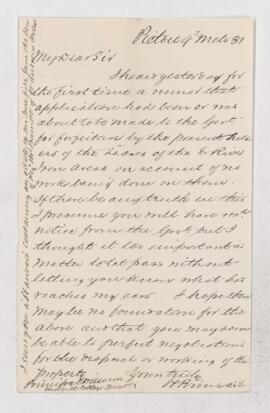 Pictou 9 Mch 81
My Dear Sir
I heard yesterday for
the first time a rumor that
application had been or was
about to be made to the Govt.
for forfeiture by the present hold
ers of the Leases of the E River
Iron Areas on account of no
work being done on them.
If there be any truth in this
I presume you will have
notice from the Govt. but I
thought it too important a
matter to let pass without
letting you know what has
reached my ears. I hope there
may be no foundation for the
above and that you may soon
be able to perfect negotiations
for the disposal or working of the
property. Yours truly
Principal Dawson
McGill College